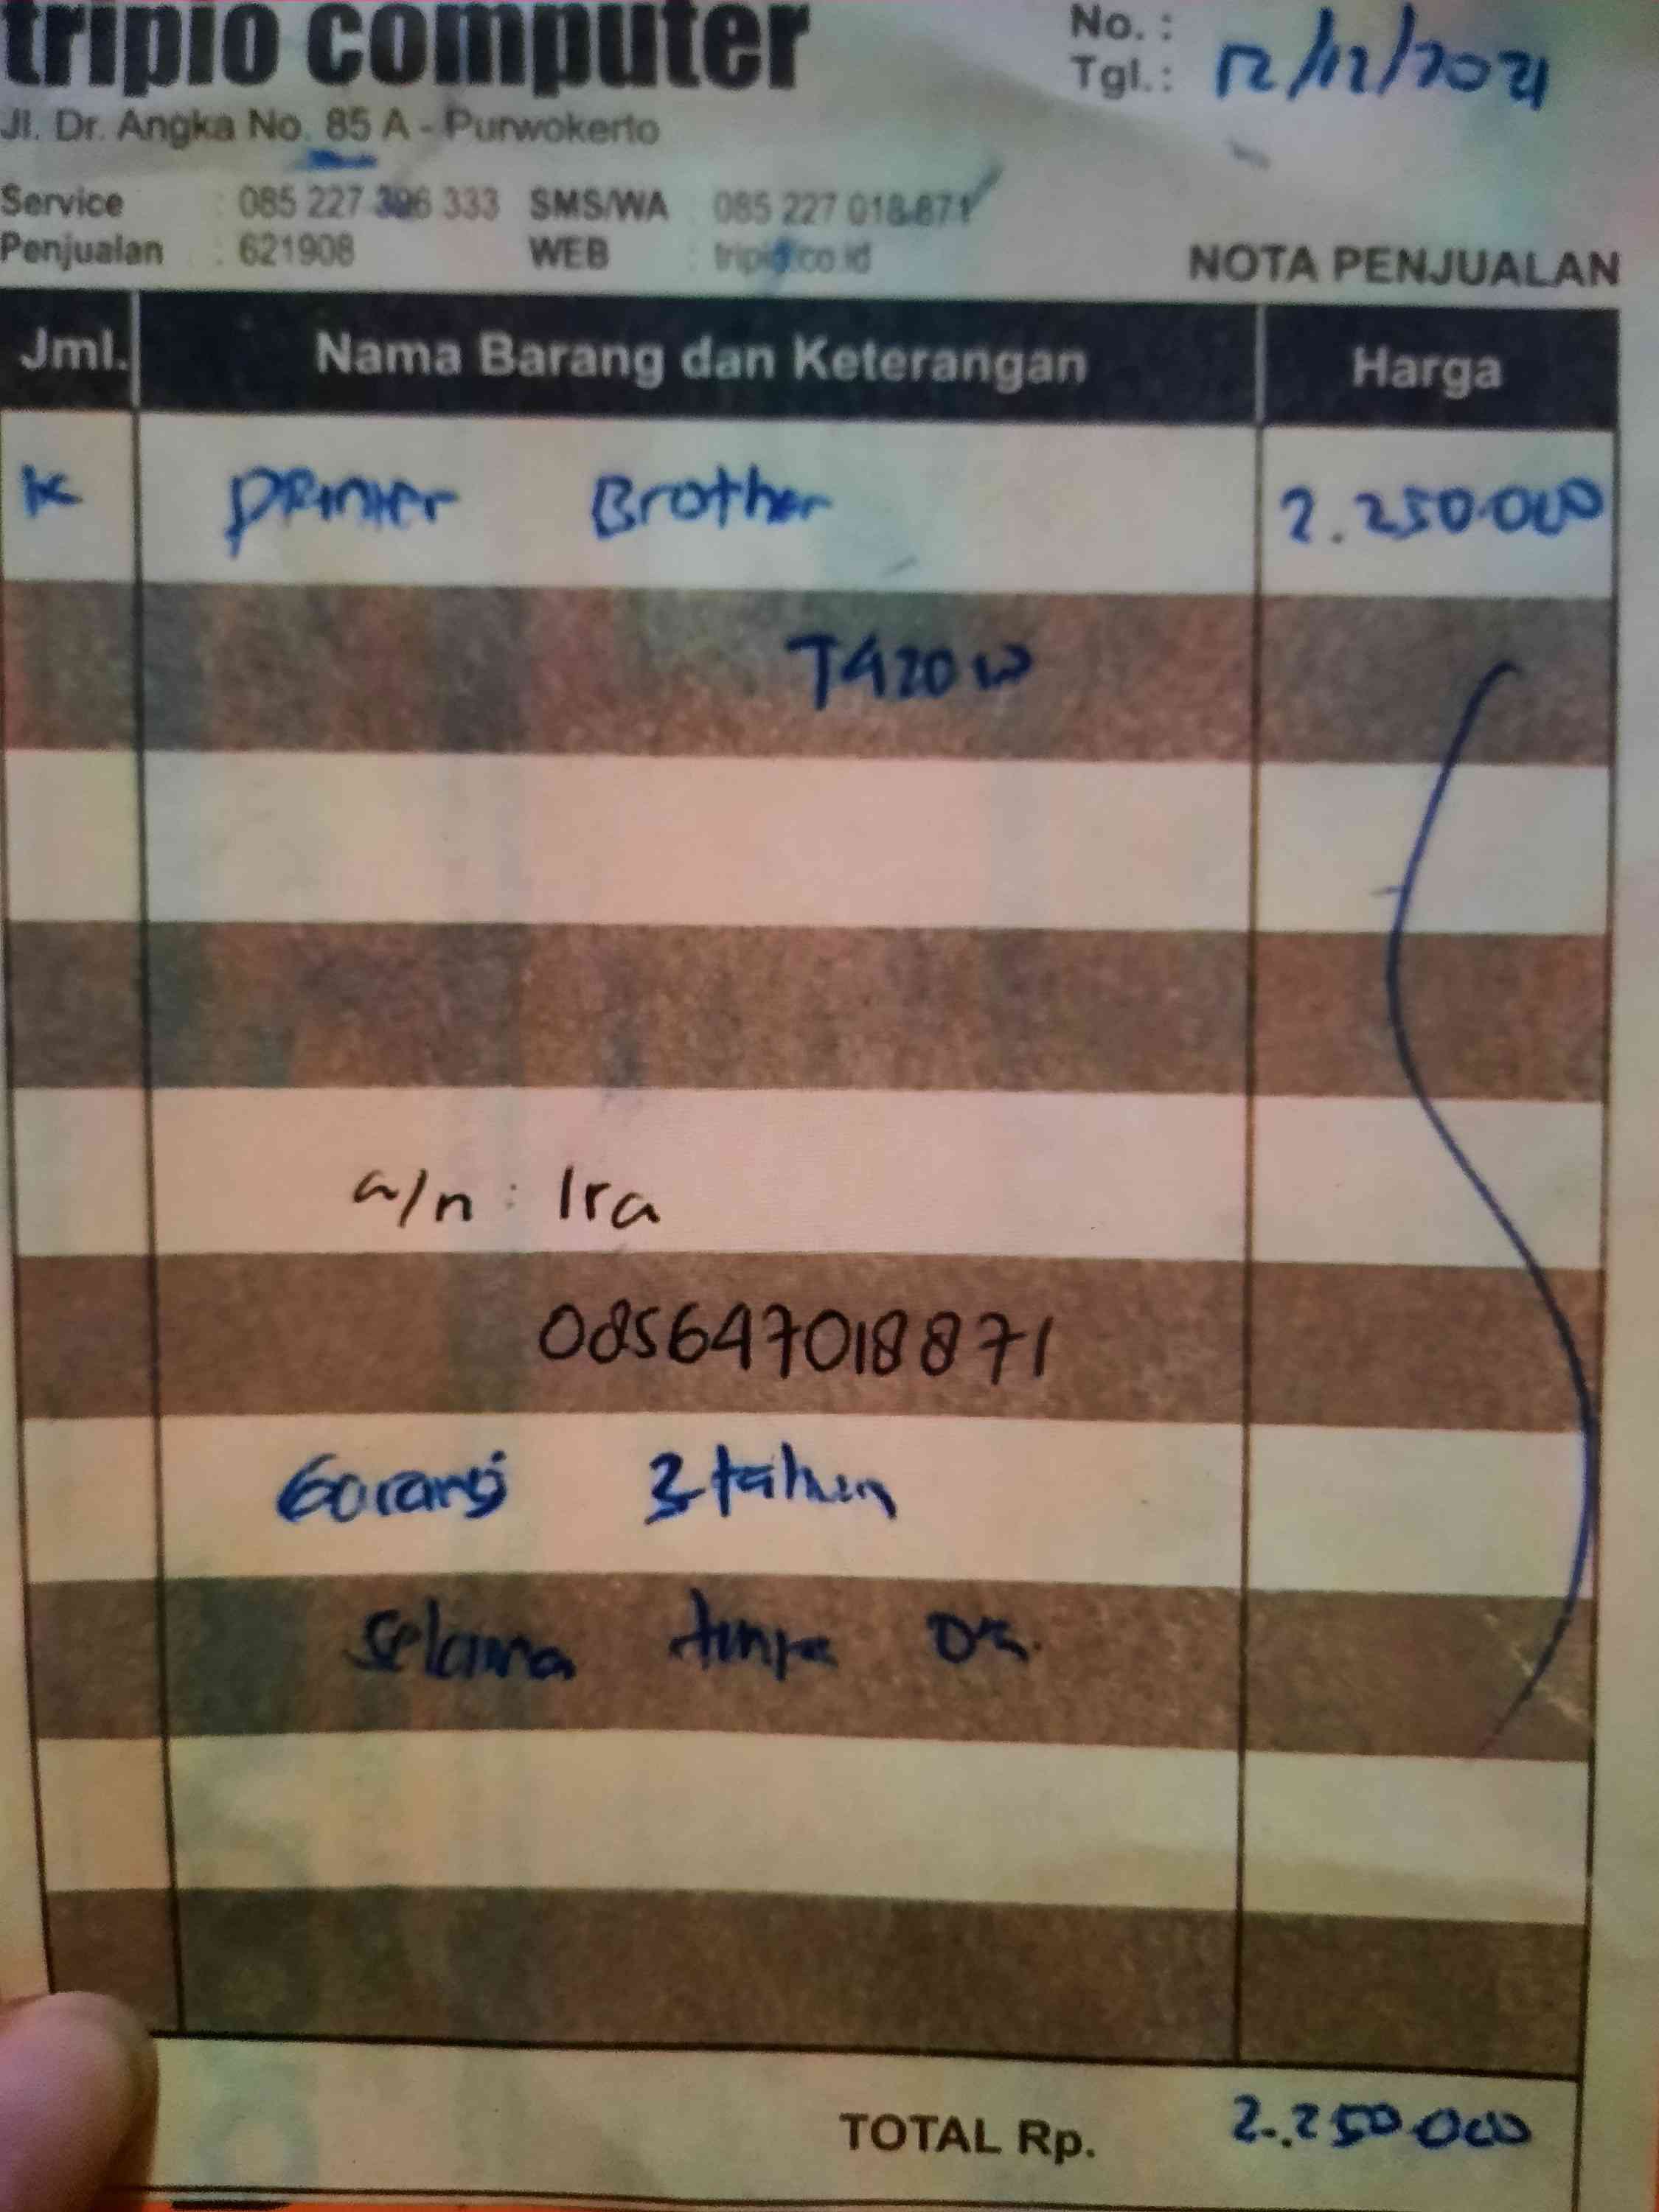 tripio computer
No. :
Tgl. : 12/12/2021
Jl. Dr. Angka No. 85 A - Purwokerto
Service : 085 227 396 333 SMS/WA : 085 227 018 871
Penjualan : 621908 WEB : tripio.co.id
NOTA PENJUALAN
Jml. Nama Barang dan Keterangan Harga
Printer Brother 2.250.000
T420W
a/n : Ira
085647018871
Garansi 3 tahun
selama tinta
TOTAL Rp. 2.250.000